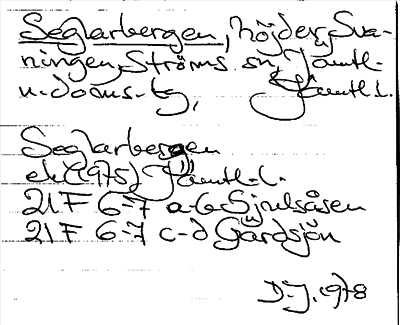 Seglarbergen, höjder, Sva-
ningen, Ströms sn, Jämtl-
n. doms. tg, Jämtl l.
Seglarbergen
ek (1975) Jämtl. l.
21F 6-7 a-b Sjulsåsen
21F 6-7 c-d Gårdsjön
D-J. 1978